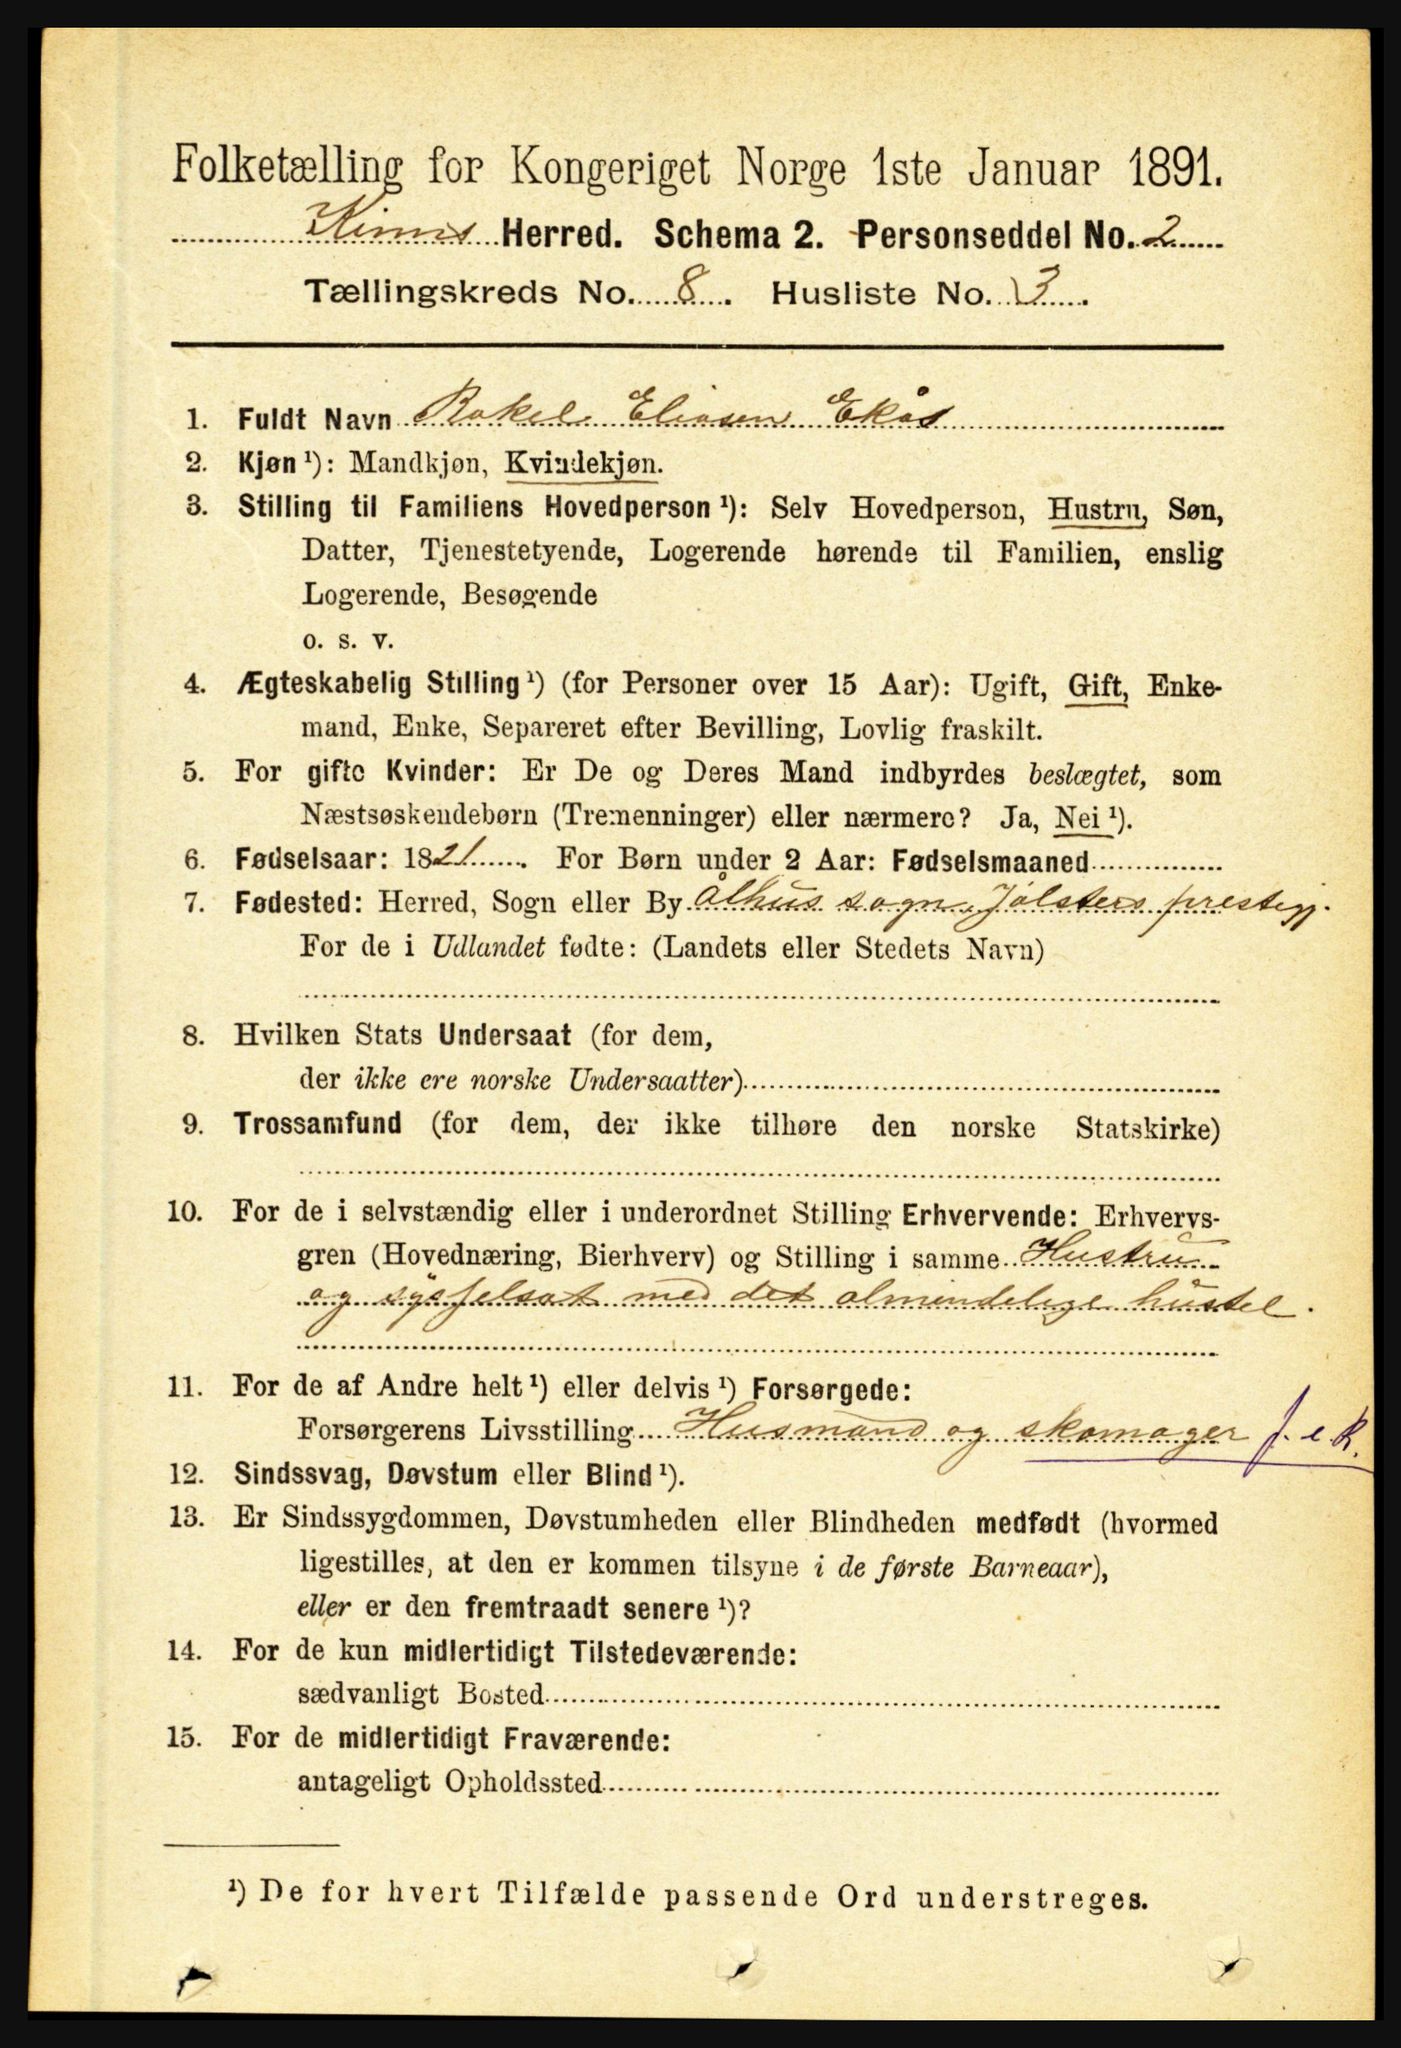 Folketælling for Kongeriget Norge 1ste Januar 1891.
Kinns Herred. Schema 2. Personseddel No. 2
Tællingskreds No. 8. Husliste No. 3.
1. Fuldt Navn Rakel Eliasen Ekås
2. Kjøn ¹): Mandkjøn, Kvindekjøn.
3. Stilling til Familiens Hovedperson ¹): Selv Hovedperson, Hustru, Søn,
Datter, Tjenestetyende, Logerende hørende til Familien, enslig
Logerende, Besøgende
o. s. v.
4. Ægteskabelig Stilling ¹) (for Personer over 15 Aar): Ugift, Gift, Enke-
mand, Enke, Separeret efter Bevilling, Lovlig fraskilt.
5. For gifte Kvinder: Er De og Deres Mand indbyrdes beslægtet, som
Næstsøskendebørn (Tremenninger) eller nærmere? Ja, Nei ¹).
6. Fødselsaar: 1821. For Børn under 2 Aar: Fødselsmaaned
7. Fødested: Herred, Sogn eller By Ålhus sogn, Jølsters prestegj.
For de i Udlandet fødte: (Landets eller Stedets Navn)
8. Hvilken Stats Undersaat (for dem,
der ikke ere norske Undersaatter)
9. Trossamfund (for dem, der ikke tilhøre den norske Statskirke)
10. For de i selvstændig eller i underordnet Stilling Erhvervende: Erhvervs-
gren (Hovednæring, Bierhverv) og Stilling i samme Hustru
og sysselsat med det almindelige hustel.
11. For de af Andre helt ¹) eller delvis ¹) Forsørgede:
Forsørgerens Livsstilling Husmand og skomager f. e. R.
12. Sindssvag, Døvstum eller Blind ¹).
13. Er Sindssygdommen, Døvstumheden eller Blindheden medfødt (hvormed
ligestilles, at den er kommen tilsyne i de første Barneaar),
eller er den fremtraadt senere ¹)?
14. For de kun midlertidigt Tilstedeværende:
sædvanligt Bosted
15. For de midlertidigt Fraværende:
antageligt Opholdssted
¹) De for hvert Tilfælde passende Ord understreges.